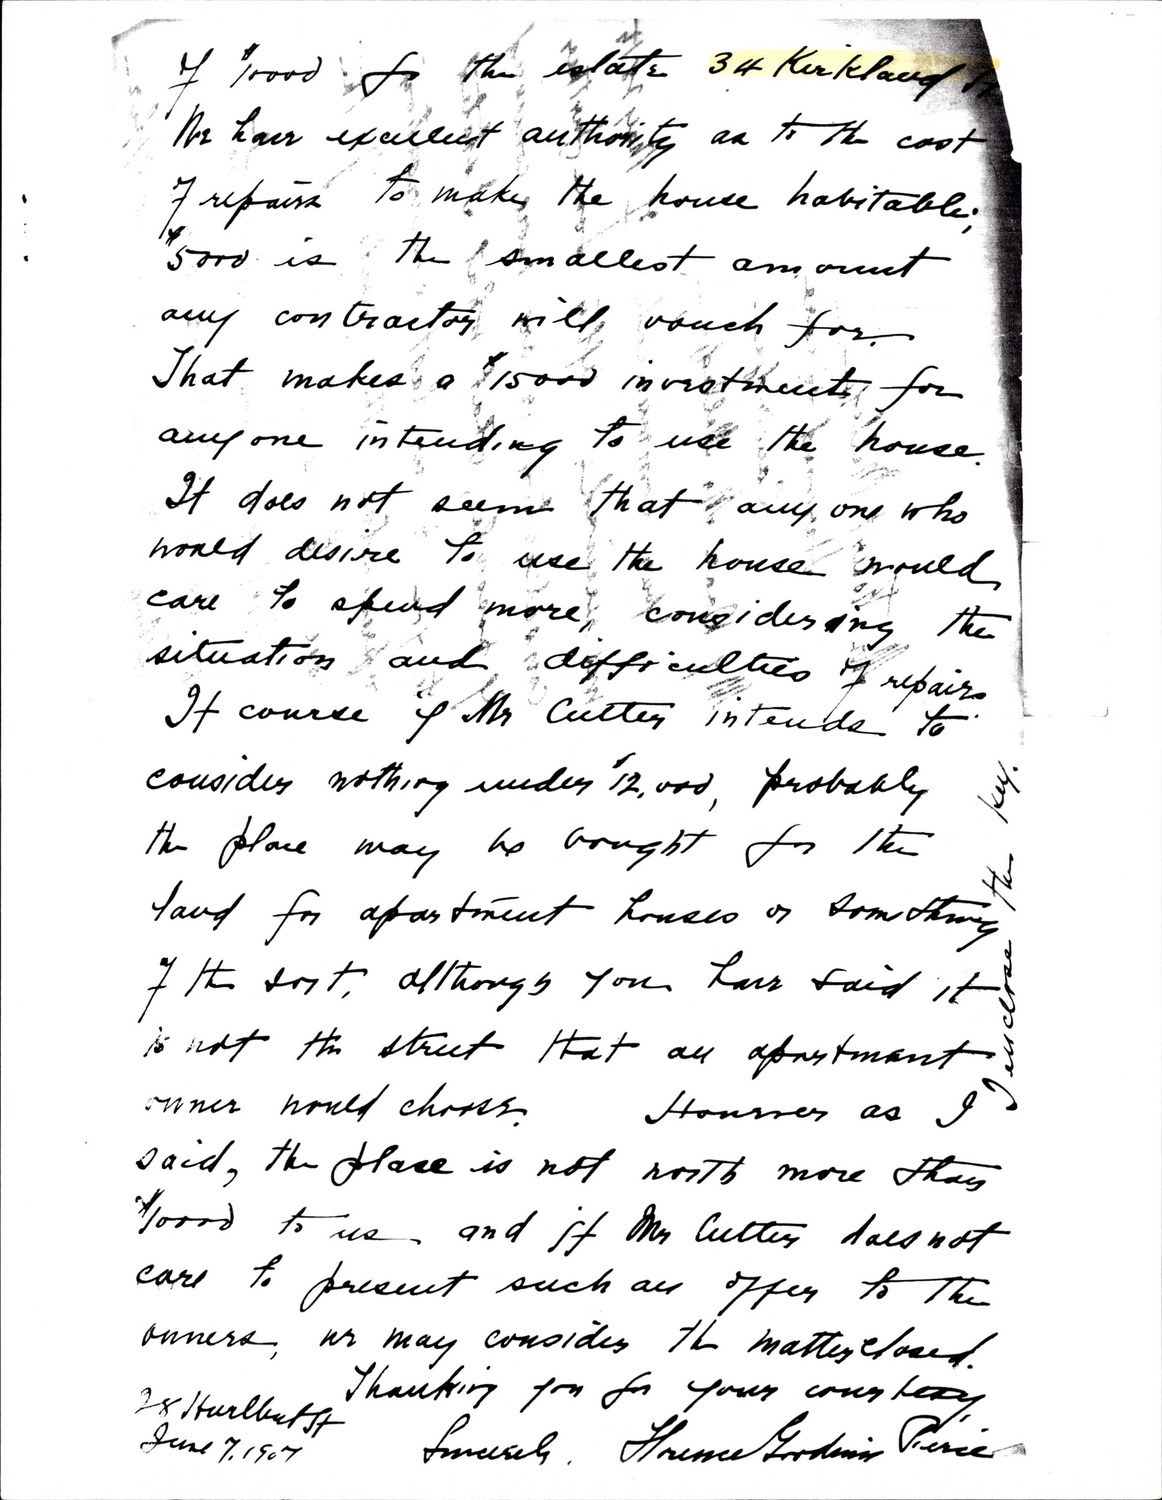 of $10000 for the estate 34 Kirkland St
We have excellent authority as to the cost
of repairs to make the house habitable;
$5000 is the smallest amount
any contractor will vouch for.
That makes a $15000 investment for
anyone intending to use the house.
It does not seem that any one who
would desire to use the house would
care to spend more, considering the
situation and difficulties of repairs.
Of course if Mr Cutter intends to
consider nothing under $12,000, probably
the place may be bought for the
land for apartment houses or something
of the sort, although you have said it
is not the street that an apartment
owner would choose. However as I
said, the place is not worth more than
$10000 to us and if Mr Cutter does not
care to present such an offer to the
owners, we may consider the matter closed.
Thanking you for your courtesy,
Sincerely, Florence Goodwin Pierce
28 Hurlbut St
June 7, 1907
I enclose the key.